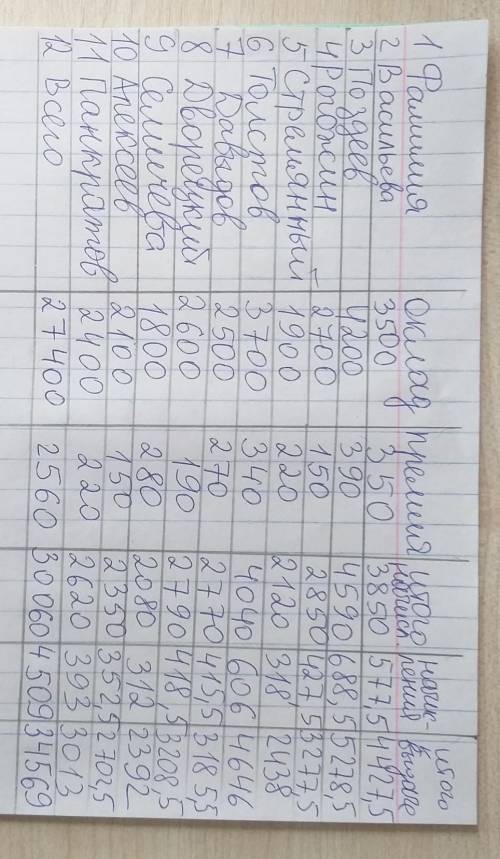 1 Фамилия оклад премия итого начисл. начис-ления итого к выдаче
2 Васильева 3500 350 3850 577,5 4427,5
3 Поздеев 4200 390 4590 688,5 5278,5
4 Рогожин 2700 150 2850 427,5 3277,5
5 Стремянный 1900 220 2120 318 2438
6 Толстов 3700 340 4040 606 4646
7 Давыдов 2500 270 2770 415,5 3185,5
8 Дворецкий 2600 190 2790 418,5 3208,5
9 1800 280 2080 312 2392
10 Алексеев 2100 150 2350
11 Панкратов 2400 220 2620 393 3013
12 Всего 27400 2560 30060 4509 34569